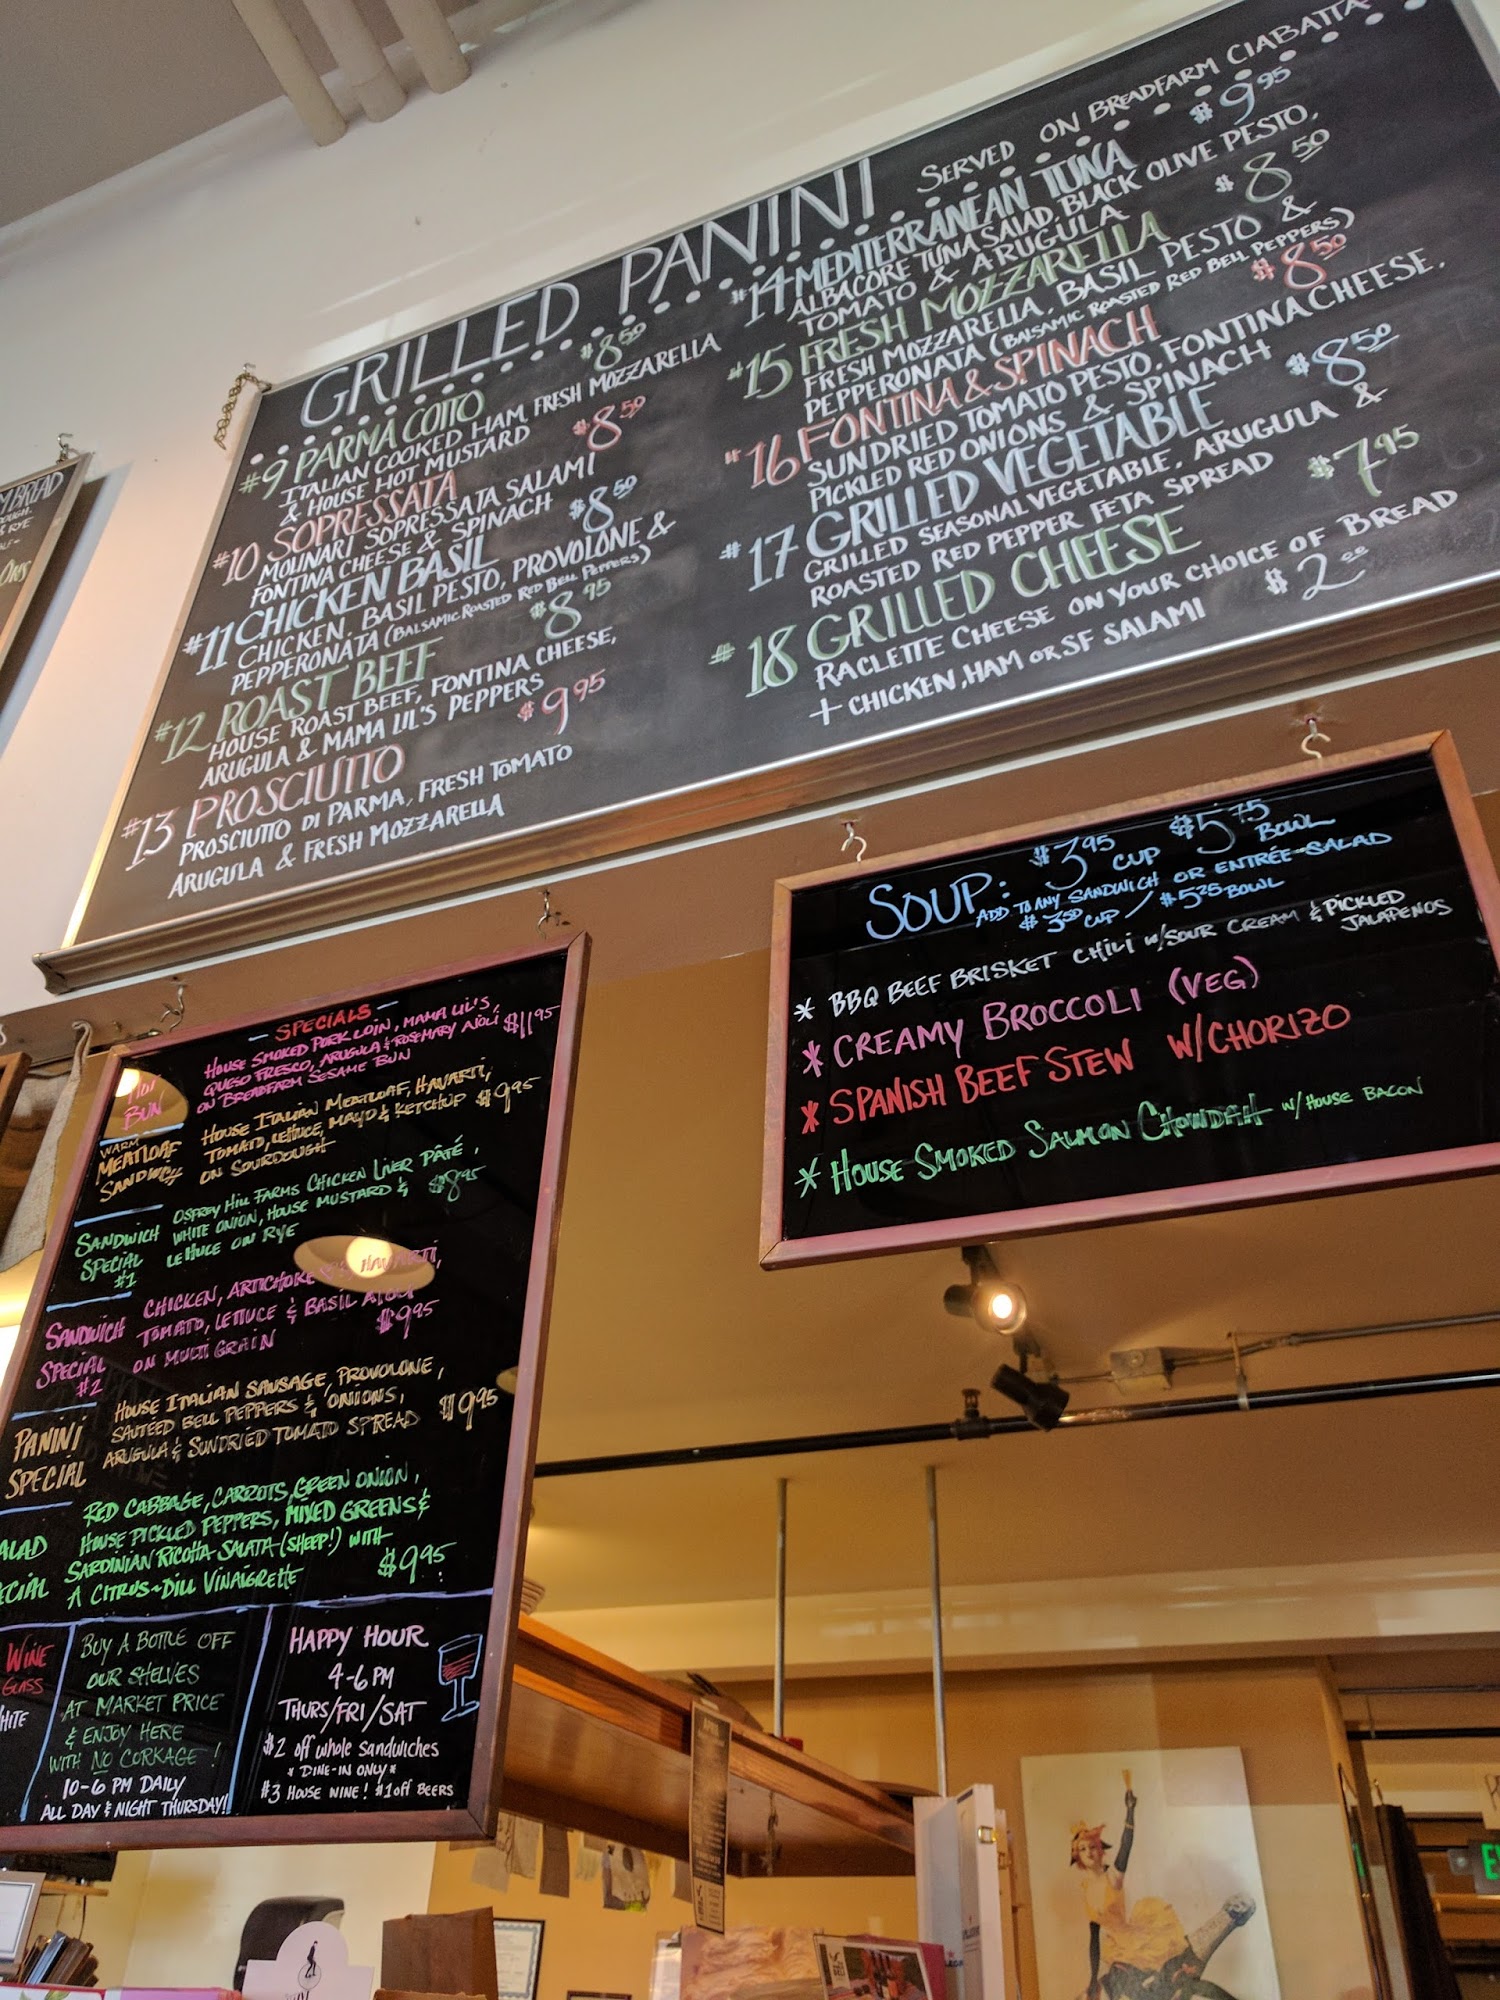 GRILLED PANINI
SERVED ON BREADFARM CIABATTA
#9 PARMA COTTO $8.50
ITALIAN COOKED HAM, FRESH MOZZARELLA
& HOUSE HOT MUSTARD
#10 SOPRESSATA $8.50
MOLINARI SOPRESSATA SALAMI
FONTINA CHEESE & SPINACH
#11 CHICKEN BASIL $8.50
CHICKEN, BASIL PESTO, PROVOLONE &
PEPPERONATA (BALSAMIC ROASTED RED BELL PEPPERS)
#12 ROAST BEEF $8.95
HOUSE ROAST BEEF, FONTINA CHEESE,
ARUGULA & MAMA LIL'S PEPPERS
#13 PROSCIUTTO $9.95
PROSCIUTTO DI PARMA, FRESH TOMATO
ARUGULA & FRESH MOZZARELLA
#14 MEDITERRANEAN TUNA $9.95
ALBACORE TUNA SALAD, BLACK OLIVE PESTO,
TOMATO & ARUGULA
#15 FRESH MOZZARELLA $8.50
FRESH MOZZARELLA, BASIL PESTO &
PEPPERONATA (BALSAMIC ROASTED RED BELL PEPPERS)
#16 FONTINA & SPINACH $8.50
SUNDRIED TOMATO PESTO, FONTINA CHEESE,
PICKLED RED ONIONS & SPINACH
#17 GRILLED VEGETABLE $8.50
GRILLED SEASONAL VEGETABLE, ARUGULA &
ROASTED RED PEPPER FETA SPREAD
#18 GRILLED CHEESE $7.95
RACLETTE CHEESE ON YOUR CHOICE OF BREAD
+ CHICKEN, HAM OR SF SALAMI $2.00
SOUP: $3.95 CUP $5.75 BOWL
ADD TO ANY SANDWICH OR ENTRÉE-SALAD
$3.50 CUP / $5.25 BOWL
* BBQ BEEF BRISKET CHILI W/SOUR CREAM & PICKLED
JALAPENOS
* CREAMY BROCCOLI (VEG)
* SPANISH BEEF STEW W/CHORIZO
* HOUSE SMOKED SALMON CHOWDAH W/ HOUSE BACON
- SPECIALS -
HOT
BUN
HOUSE SMOKED PORK LOIN, MAMA LIL'S,
QUESO FRESCO, ARUGULA & ROSEMARY AIOLI $11.95
ON BREADFARM SESAME BUN
WARM
MEATLOAF
SANDWICH
HOUSE ITALIAN MEATLOAF, HAVARTI,
TOMATO, LETTUCE, MAYO & KETCHUP $9.95
ON SOURDOUGH
SANDWICH
SPECIAL
#1
OSPREY HILL FARMS CHICKEN LIVER PÂTÉ,
WHITE ONION, HOUSE MUSTARD & $8.95
LETTUCE ON RYE
SANDWICH
SPECIAL
#2
CHICKEN, ARTICHOKE HAVARTI,
TOMATO, LETTUCE & BASIL AIOLI
ON MULTI GRAIN $9.95
PANINI
SPECIAL
HOUSE ITALIAN SAUSAGE, PROVOLONE,
SAUTEED BELL PEPPERS & ONIONS,
ARUGULA & SUNDRIED TOMATO SPREAD $9.95
ALAD
ECIAL
RED CABBAGE, CARROTS, GREEN ONION,
HOUSE PICKLED PEPPERS, MIXED GREENS &
SARDINIAN RICOTTA SALATA (SHEEP!) WITH
A CITRUS-DILL VINAIGRETTE $9.95
WINE
GLASS
HITE
BUY A BOTTLE OFF
OUR SHELVES
AT MARKET PRICE
& ENJOY HERE
WITH NO CORKAGE!
10-6 PM DAILY
ALL DAY & NIGHT THURSDAY!
HAPPY HOUR
4-6 PM
THURS/FRI/SAT
$2 off whole sandwiches
* DINE-IN ONLY *
$3 HOUSE WINE! $1 off BEERS